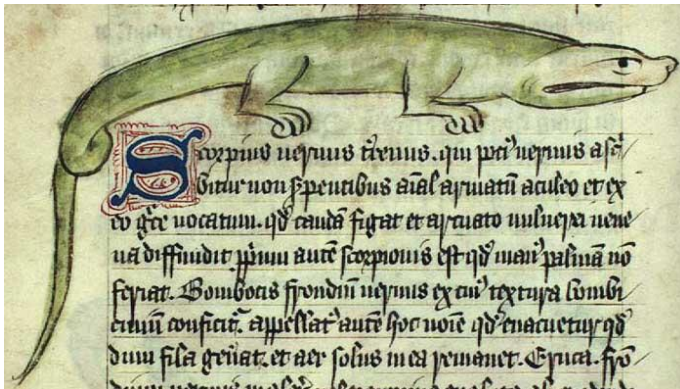 Scorpius uermis t̄renus. qui poti᾽ uermis asc̓i
bitur non s̓pentibus aīal armatū aculeo et ex
eo g̓ce uocatum. qd̓ caudā figat et arcuato uulnere uene
na diffundit ꝓprium autē scorpionis est qd̓ man᾽ palmam nō
feriat. Bombocis frondiū uermis ex cui᾽ textura bombi
cinum conficit᾽. appellat᾽ autē hoc noīe qd̓ euacuetur qd̓
dum fila gen̓at. et aer solus in ea remanet. Eruca. frō
dium uermis